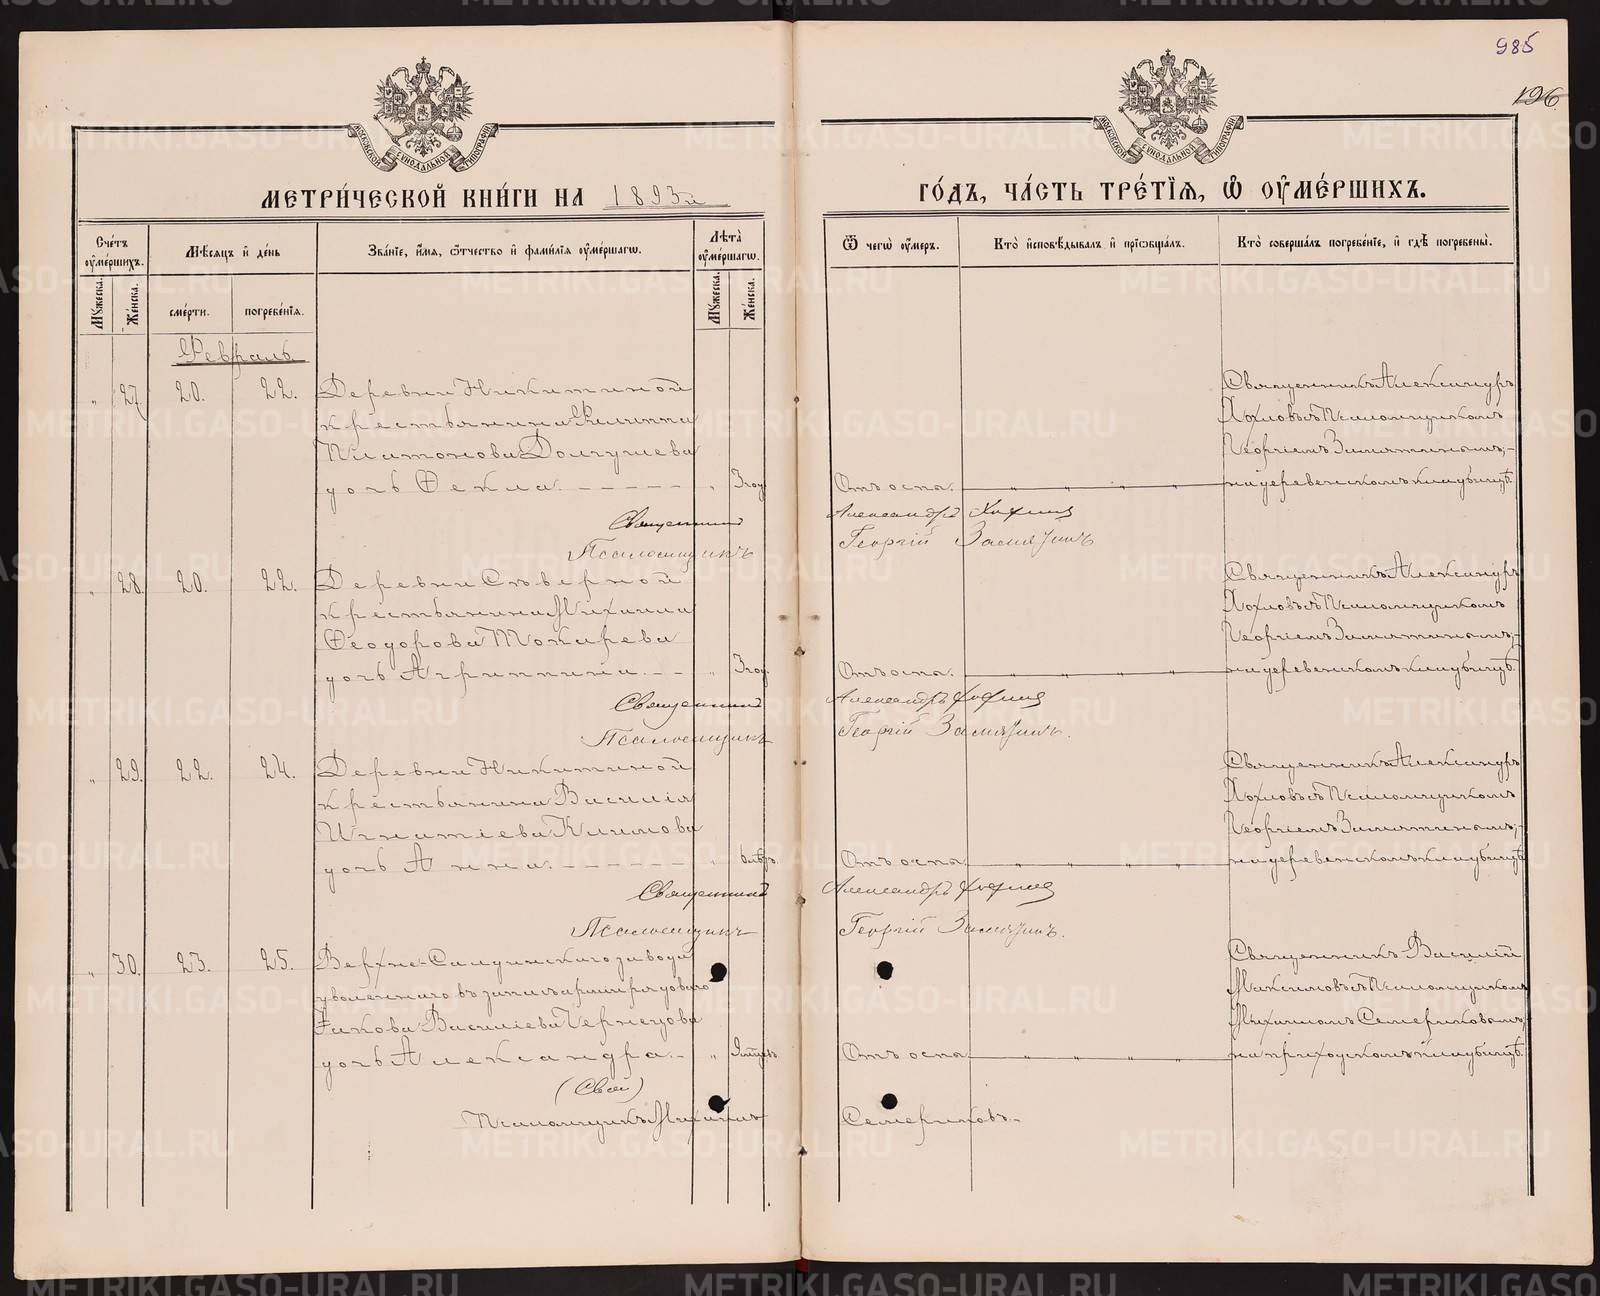 985
196
МОСКОВСКОЙ СѴНОДАЛЬНОЙ ТИПОГРАФІИ
МОСКОВСКОЙ СѴНОДАЛЬНОЙ ТИПОГРАФІИ
МЕТРИ́ЧЕСКОЙ КНИ́ГИ НА 1893й
ГО́ДЪ, ЧА́СТЬ ТРЕ́ТІѦ, Ѡ ОУМЕ́РШИХЪ.
Сче́тъ оуме́ршихъ.
Мѣ́сяцъ и де́нь
Зва́ніе, и́мя, ѻ́тчество и фами́лія оуме́ршагѡ.
Лѣта̀ оуме́ршагѡ.
Ѿ чегѡ̀ оу́меръ.
Кто̀ исповѣ́дывалъ и пріѡбща́лъ.
Кто̀ соверша́лъ погребе́ніе, и гдѣ̀ погребены̀.
Му́жеска.
Же́нска.
сме́рти.
погребе́нія.
Му́жеска.
Же́нска.
Февраль
" 27. 20. 22. Деревни Никитиной
крестьянина Филиппа
Платонова Долгушева
дочь Фекла. " 3 год.
Отъ оспы.
Священникъ Александръ
Хохловъ съ Псаломщикомъ
Георгіемъ Замятинымъ;
на деревенскомъ кладбищѣ.
Священникъ Александръ Хохловъ
Псаломщикъ Георгій Замятинъ
" 28. 20. 22. Деревни Сѣверной
крестьянина Михаила
Феодорова Токарева
дочь Агриппина. " 3 год.
Отъ оспы.
Священникъ Александръ
Хохловъ съ Псаломщикомъ
Георгіемъ Замятинымъ;
на деревенскомъ кладбищѣ.
Священникъ Александръ Хохловъ
Псаломщикъ Георгій Замятинъ.
" 29. 22. 24. Деревни Никитиной
крестьянина Василія
Игнатіева Климова
дочь Анна.
Отъ оспы.
Священникъ Александръ
Хохловъ съ Псаломщикомъ
Георгіемъ Замятинымъ;
на деревенскомъ кладбищѣ.
Священникъ Александръ Хохловъ
Псаломщикъ Георгій Замятинъ.
" 30. 23. 25. Верхне-Салдинскаго завода
уволеннаго въ запасъ арміи рядоваго
Іакова Василіева Чернецова
дочь Александра. "
Отъ оспы
Священникъ Василій
Максимовъ съ Псаломщикомъ
Михаиломъ Семериковымъ;
на приходскомъ кладбищѣ.
Псаломщикъ Михаилъ Семериковъ.
METRIKI.GASO-URAL.RU